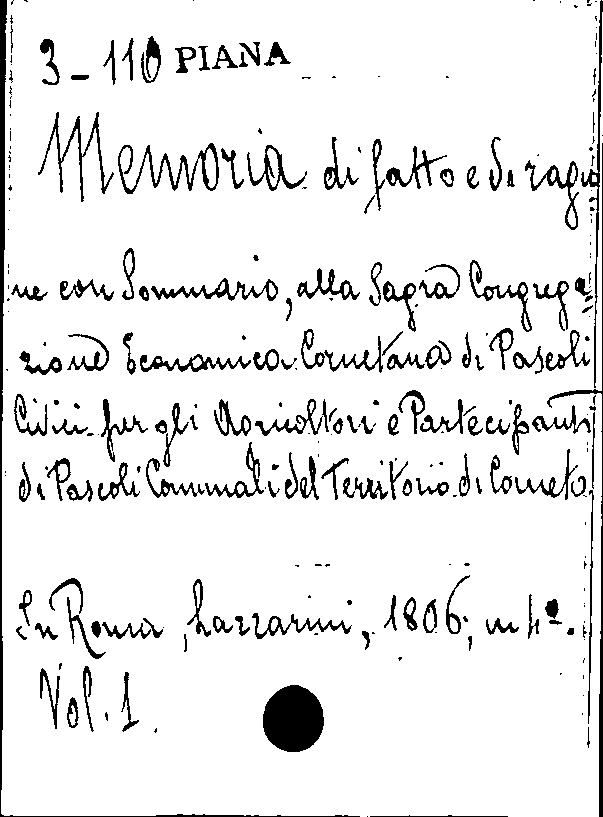 3-110 PIANA
Memoria di fatto e di ragio
ne con Sommario, alla Sagra Congrega=
zione Economica Cornetana di Pascoli
Civici per gli Agricoltori e Partecipanti
di Pascoli Comunali del Territorio di Corneto.
In Roma, Lazzarini, 1806, in 4º.
Vol. 1.